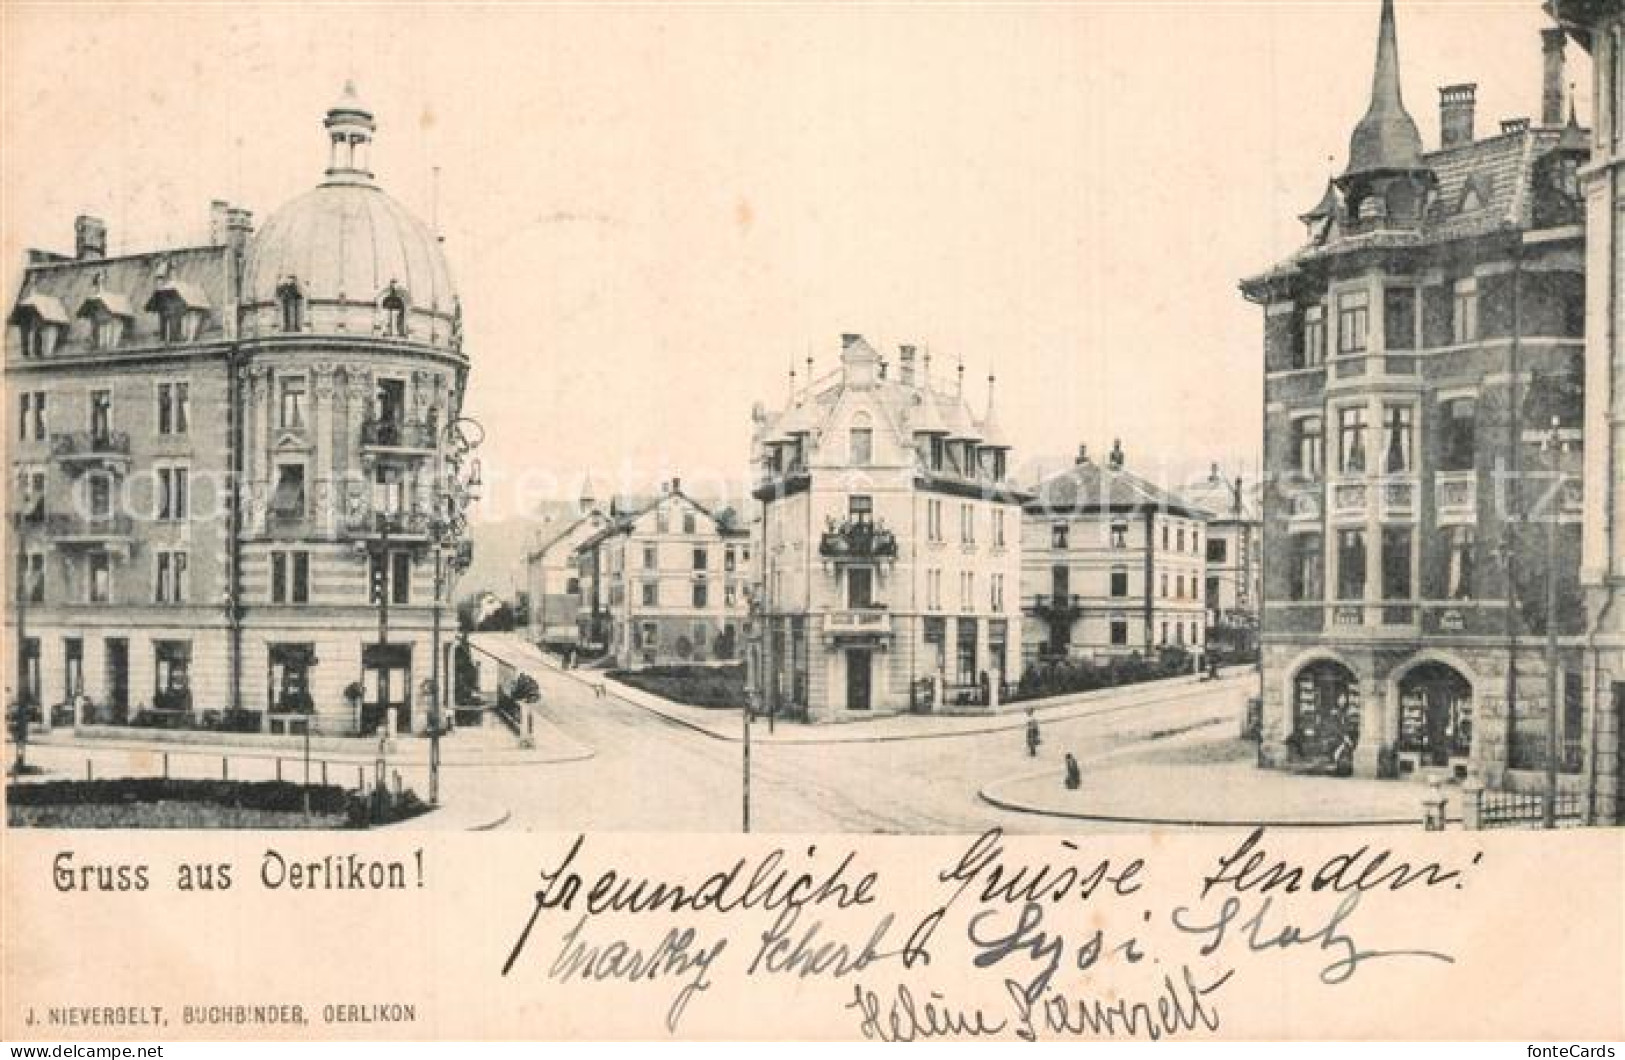 Gruss aus Oerlikon!
freundliche Grüsse senden:
Marthy Scherb Lysi Stolz
Helene
J. NIEVERGELT, BUCHBINDER, OERLIKON
fonteCards